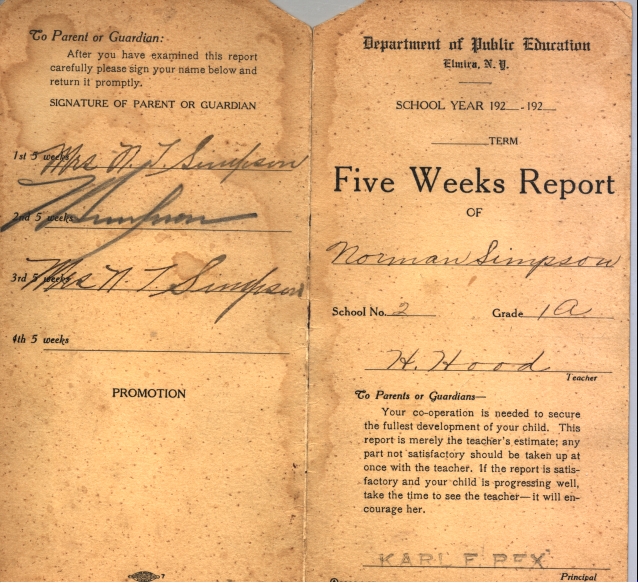 To Parent or Guardian:-
After you have examined this report
carefully please sign your name below and
return it promptly.
SIGNATURE OF PARENT OR GUARDIAN
1st 5 weeks Mrs N. T. Simpson
2nd 5 weeks Simpson
3rd 5 weeks Mrs N. T. Simpson
4th 5 weeks
PROMOTION
Department of Public Education
Elmira, N. Y.
SCHOOL YEAR 192__-192__
______TERM
Five Weeks Report
OF
Norman Simpson
School No. 2 Grade 1A
H. Hood
Teacher
To Parents or Guardians—
Your co-operation is needed to secure
the fullest development of your child. This
report is merely the teacher's estimate; any
part not satisfactory should be taken up at
once with the teacher. If the report is satis-
factory and your child is progressing well,
take the time to see the teacher—it will en-
courage her.
KARL F REX
Principal